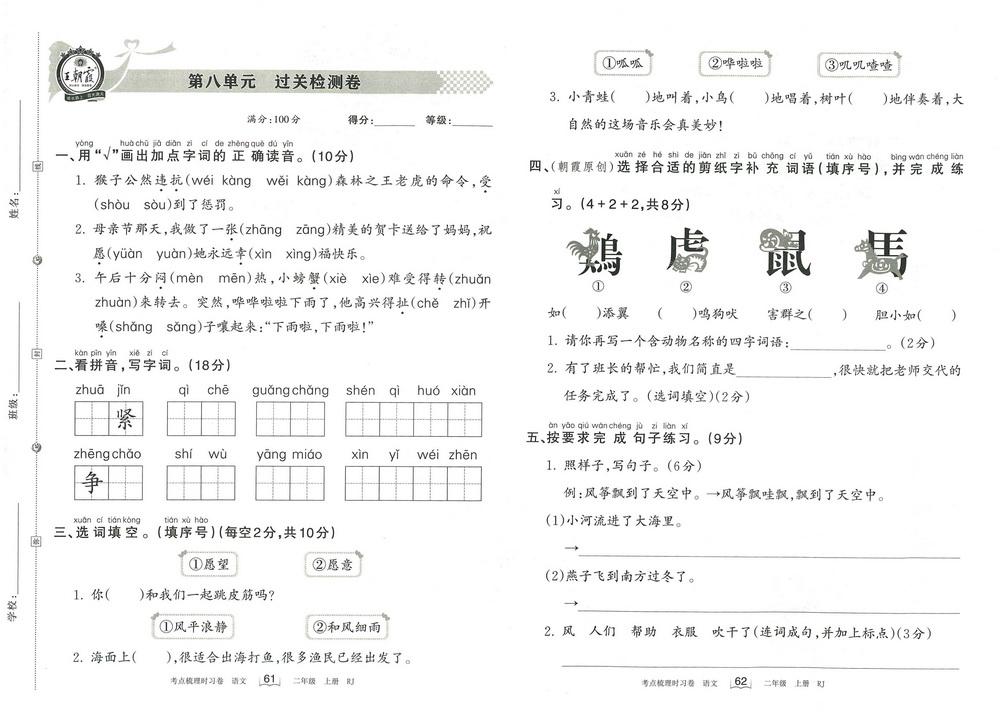 王朝霞
第八单元 过关检测卷
满分:100分 得分:______ 等级:______
yòng huà chū jiā diǎn zì cí de zhèng què dú yīn
一、用“√”画出加点字词的正确读音。(10分)
1. 猴子公然违抗(wéi kàng wěi kàng)森林之王老虎的命令,受
(shòu sòu)到了惩罚。
2. 母亲节那天,我做了一张(zhāng zāng)精美的贺卡送给了妈妈,祝
愿(yüàn yuàn)她永远幸(xìn xìng)福快乐。
3. 午后十分闷(mèn mēn)热,小螃蟹(xiè xie)难受得转(zhuǎn
zhuàn)来转去。突然,哗哗啦啦下雨了,他高兴得扯(chě zhǐ)开
嗓(shǎng sǎng)子嚷起来:“下雨啦,下雨啦!”
kàn pīn yīn xiě zì cí
二、看拼音,写字词。(18分)
zhuā jǐn qì chē guǎng chǎng shén qì huó xiàn
紧
zhēng chǎo shí wù yāng miáo xìn yǐ wéi zhēn
争
xuǎn cí tián kòng tián xù hào
三、选词填空。(填序号)(每空2分,共10分)
①愿望 ②愿意
1. 你( )和我们一起跳皮筋吗?
①风平浪静 ②和风细雨
2. 海面上( ),很适合出海打鱼,很多渔民已经出发了。
考点梳理时习卷 语文 61 二年级 上册 RJ
姓名:
班级:
学校:
线
封
密
①呱呱 ②哗啦啦 ③叽叽喳喳
3. 小青蛙( )地叫着,小鸟( )地唱着,树叶( )地伴奏着,大
自然的这场音乐会真美妙!
xuǎn zé hé shì de jiǎn zhǐ zì bǔ chōng cí yǔ tián xù hào bìng wán chéng liàn
四、(朝霞原创)选择合适的剪纸字补充词语(填序号),并完成练
xí
习。(4+2+2,共8分)
鷄 虎 鼠 馬
① ② ③ ④
如( )添翼 ( )鸣狗吠 害群之( ) 胆小如( )
1. 请你再写一个含动物名称的四字词语:____________。(2分)
2. 有了班长的帮忙,我们简直是____________,很快就把老师交代的
任务完成了。(选词填空)(2分)
àn yāo qiú wán chéng jù zi liàn xí
五、按要求完成句子练习。(9分)
1. 照样子,写句子。(6分)
例:风筝飘到了天空中。→风筝飘哇飘,飘到了天空中。
(1)小河流进了大海里。
→____________
(2)燕子飞到南方过冬了。
→____________
2. 风 人们 帮助 衣服 吹干了(连词成句,并加上标点)(3分)
____________
考点梳理时习卷 语文 62 二年级 上册 RJ